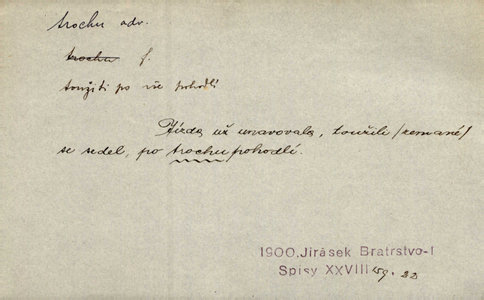 trochu adv.
trochu f.
toužiti po vše pohodlí
Jízda už unavovala, toužili /zemané/
se sedel, po trochu pohodlí.
1900, Jirásek Bratrstvo-I
Spisy XXVIII str. 22